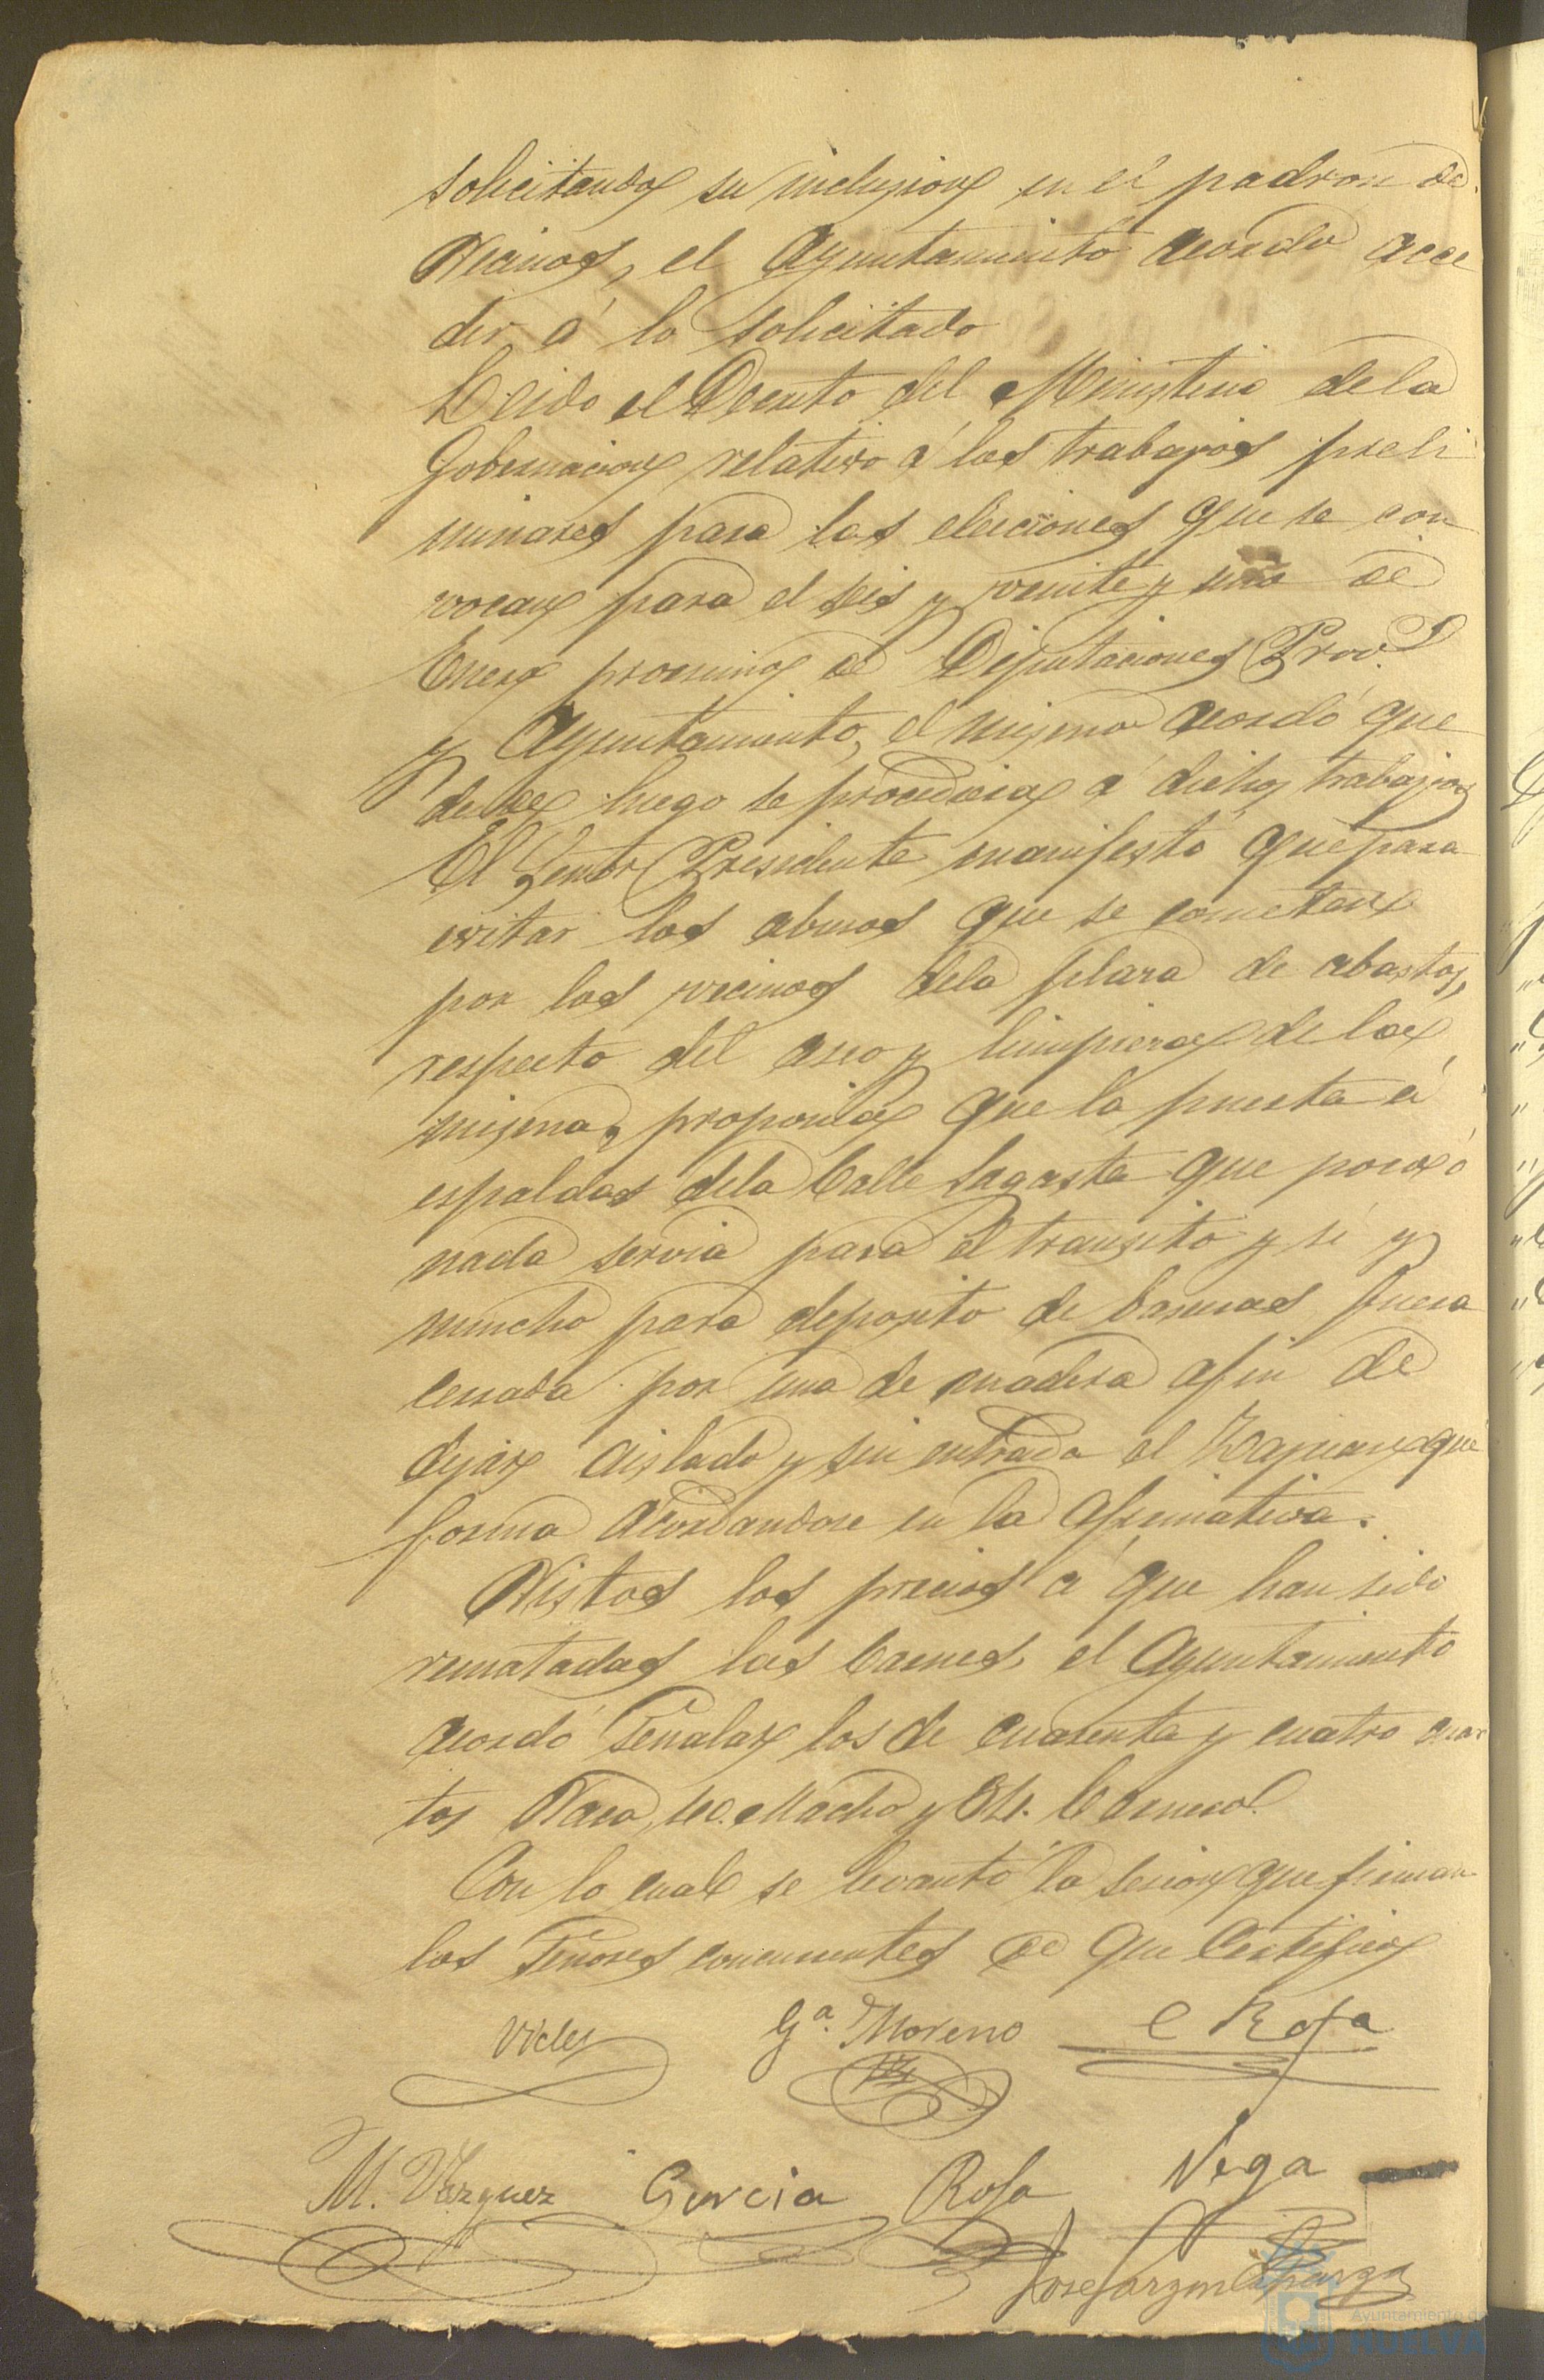 solicitando su inclusion en el padron de
vecinos, el Ayuntamiento acordó acce
der á lo solicitado
Leido el Decreto del Ministerio de la
Gobernacion relativo á los trabajos preli
minares para las elecciones que se con
vocan para el seis y veinte y uno de
Enero procsimo de Diputaciones Prov.s
y Ayuntamiento, el mismo acordó que
desde luego se procediera á dichos trabajos
El Señor Presidente manifestó que para
evitar los abusos que se cometen
por los vecinos dela plaza de abastos,
respecto del aseo y limpieza de la
misma, proponia que la puerta á
espaldas dela Calle Sagasta que poco ó
nada servia para el transito y si y
mucho para deposito de basuras fuera
cerrada por una de madera afin de
dejar aislado y sin entrada el Zaguan que
forma acordandose en la afirmativa.
Vistos los precios á que han sido
rematadas las Carnes, el Ayuntamiento
acordó señalar los de cuarenta y cuatro cuar
tos Vaca, Macho y Carnero.
Con lo cual se levantó la sesion que firman
los Señores concurrentes de que Certifico
Gª. Moreno C Rofa
M. Vazquez Garcia Rofa Vega
Jose
Ayuntamiento de
HUELVA